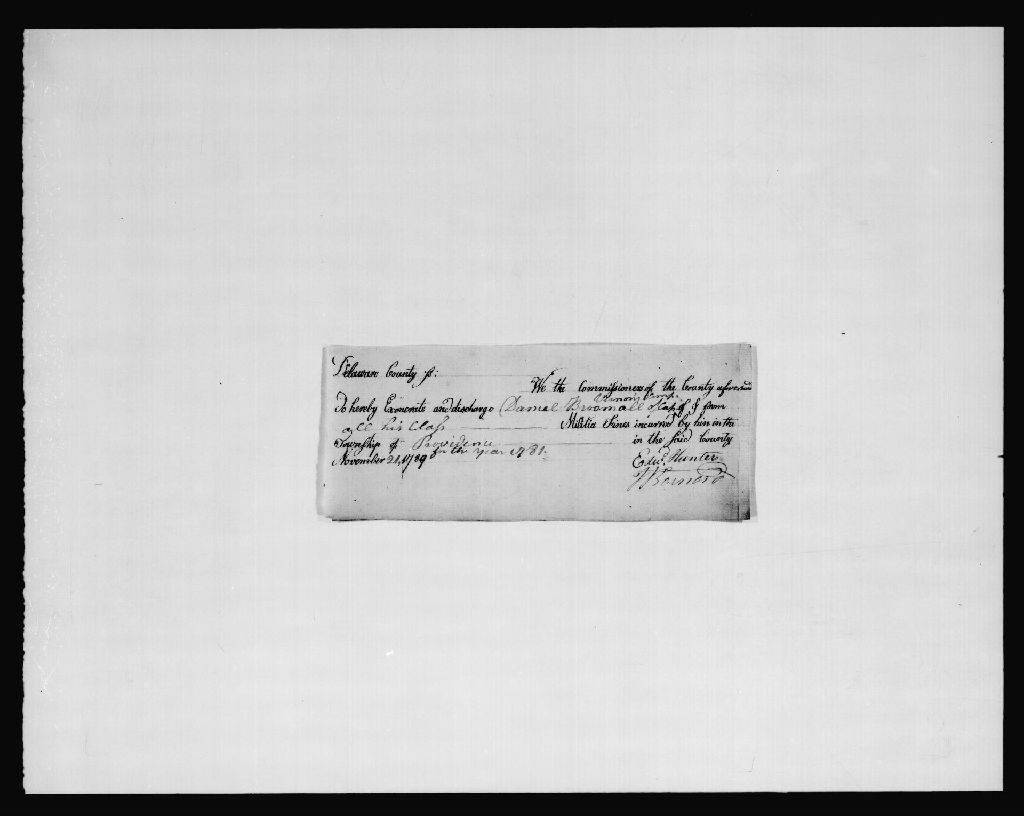 Delaware County ss:
We the Commissioners of the County aforesaid
Do hereby Exonerate and discharge Daniel Broomall of from
all his Class Militia Fines incurred by him in the
Township of Providence in the said County
for the year 1781.
November 21, 1789 Edwd. Hunter